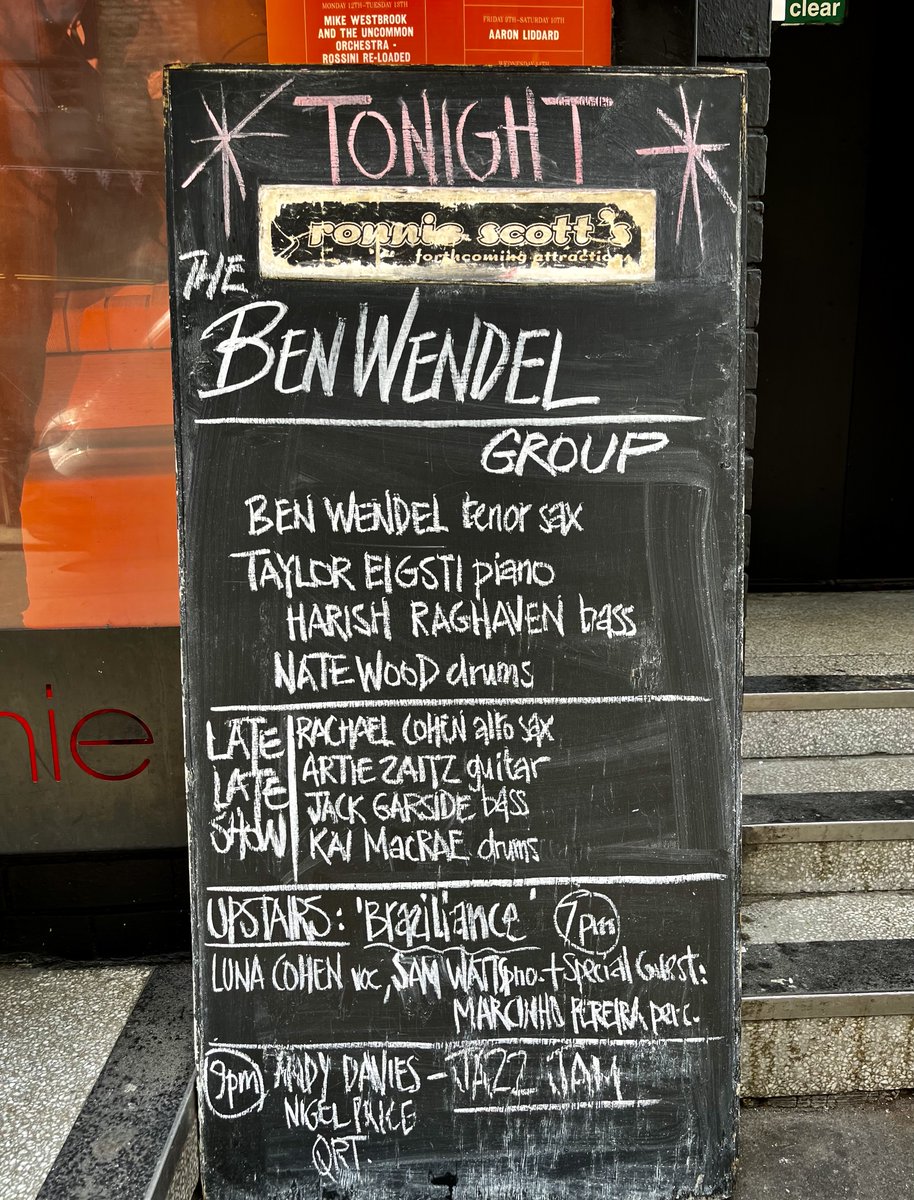 MONDAY 12TH-TUESDAY 13TH
MIKE WESTBROOK
AND THE UNCOMMON
ORCHESTRA -
ROSSINI RE-LOADED
FRIDAY 9TH-SATURDAY 10TH
AARON LIDDARD
clear
TONIGHT
ronnie scott's
forthcoming attractions
THE
BEN WENDEL
GROUP
BEN WENDEL tenor sax
TAYLOR EIGSTI piano
HARISH RAGHAVEN bass
NATE WOOD drums
LATE
LATE
SHOW
RACHAEL COHEN alto sax
ARTIE ZAITZ guitar
JACK GARSIDE bass
KAI MACRAE drums
UPSTAIRS: 'Braziliance' 7pm
LUNA COHEN voc, SAM WATTS pno. + Special Guest:
MARCINHO PEREIRA perc.
9pm ANDY DAVIES - JAZZ JAM
NIGEL PRICE
QRT.
nie